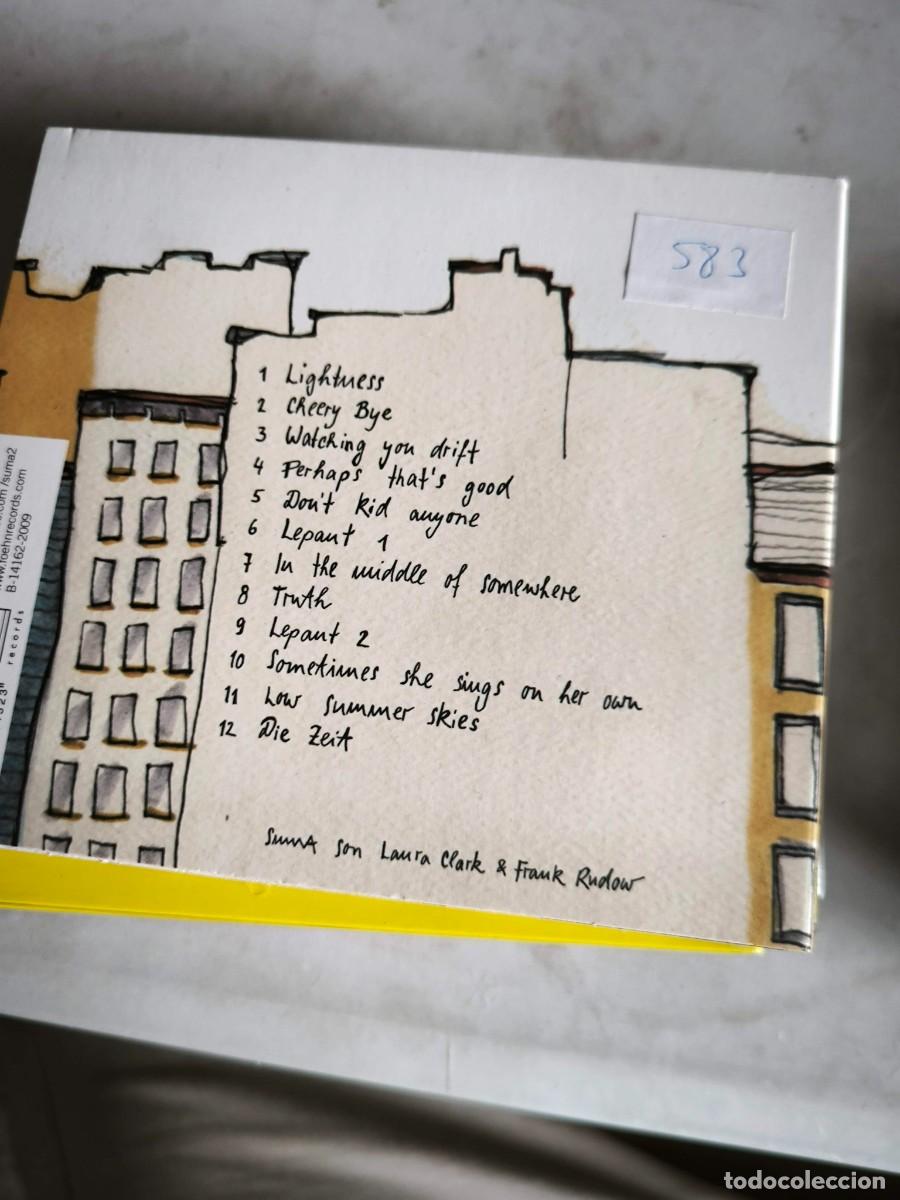 583
1 Lightness
2 Cheery Bye
3 Watching you drift
4 Perhaps that's good
5 Don't kid anyone
6 Lepant 1
7 In the middle of somewhere
8 Truth
9 Lepant 2
10 Sometimes she sings on her own
11 Low summer skies
12 Die Zeit
SumA son Laura Clark & Frank Rudow
.com/suma2
www.foehnrecords.com
B-14162-2009
records
todocoleccion